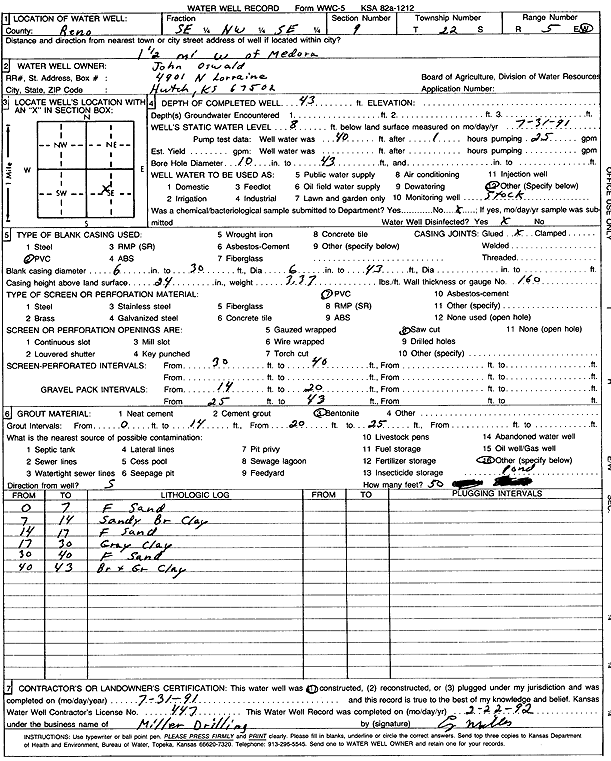 WATER WELL RECORD Form WWC-5 KSA 82a-1212
1 LOCATION OF WATER WELL: Fraction Section Number Township Number Range Number
County: Reno SE ¼ NW ¼ SE ¼ 9 T 22 S R 5 E/W
Distance and direction from nearest town or city street address of well if located within city?
1 1/2 mi W of Medora
2 WATER WELL OWNER: John Oswald
RR#, St. Address, Box # : 4901 N Lorraine Board of Agriculture, Division of Water Resources
City, State, ZIP Code : Hutch, KS 67502 Application Number:
3 LOCATE WELL'S LOCATION WITH AN "X" IN SECTION BOX:
N
NW NE
W E
SW X SE
S
1 Mile
4 DEPTH OF COMPLETED WELL 43 ft. ELEVATION:
Depth(s) Groundwater Encountered 1. ft. 2. ft. 3. ft.
WELL'S STATIC WATER LEVEL 8 ft. below land surface measured on mo/day/yr 7-31-91
Pump test data: Well water was 40 ft. after 1 hours pumping 25 gpm
Est. Yield gpm: Well water was ft. after hours pumping gpm
Bore Hole Diameter 10 in. to 43 ft., and in. to ft.
WELL WATER TO BE USED AS: 5 Public water supply 8 Air conditioning 11 Injection well
1 Domestic 3 Feedlot 6 Oil field water supply 9 Dewatering 12 Other (Specify below)
2 Irrigation 4 Industrial 7 Lawn and garden only 10 Monitoring well Stock
Was a chemical/bacteriological sample submitted to Department? Yes No X; If yes, mo/day/yr sample was submitted Water Well Disinfected? Yes X No
5 TYPE OF BLANK CASING USED: 5 Wrought iron 8 Concrete tile CASING JOINTS: Glued X Clamped
1 Steel 3 RMP (SR) 6 Asbestos-Cement 9 Other (specify below) Welded
2 PVC 4 ABS 7 Fiberglass Threaded
Blank casing diameter 6 in. to 30 ft., Dia 6 in. to 43 ft., Dia in. to ft.
Casing height above land surface 24 in., weight 3.37 lbs./ft. Wall thickness or gauge No. 160
TYPE OF SCREEN OR PERFORATION MATERIAL: 7 PVC 10 Asbestos-cement
1 Steel 3 Stainless steel 5 Fiberglass 8 RMP (SR) 11 Other (specify)
2 Brass 4 Galvanized steel 6 Concrete tile 9 ABS 12 None used (open hole)
SCREEN OR PERFORATION OPENINGS ARE: 5 Gauzed wrapped 8 Saw cut 11 None (open hole)
1 Continuous slot 3 Mill slot 6 Wire wrapped 9 Drilled holes
2 Louvered shutter 4 Key punched 7 Torch cut 10 Other (specify)
SCREEN-PERFORATED INTERVALS: From 30 ft. to 40 ft., From ft. to ft.
From ft. to ft., From ft. to ft.
GRAVEL PACK INTERVALS: From 14 ft. to 20 ft., From ft. to ft.
From 25 ft. to 43 ft., From ft. to ft.
6 GROUT MATERIAL: 1 Neat cement 2 Cement grout 3 Bentonite 4 Other
Grout Intervals: From 0 ft. to 14 ft., From 20 ft. to 25 ft., From ft. to ft.
What is the nearest source of possible contamination: 10 Livestock pens 14 Abandoned water well
1 Septic tank 4 Lateral lines 7 Pit privy 11 Fuel storage 15 Oil well/Gas well
2 Sewer lines 5 Cess pool 8 Sewage lagoon 12 Fertilizer storage 16 Other (specify below)
3 Watertight sewer lines 6 Seepage pit 9 Feedyard 13 Insecticide storage Pond
Direction from well? S How many feet? 50
FROM TO LITHOLOGIC LOG FROM TO PLUGGING INTERVALS
0 7 F Sand
7 14 Sandy Br Clay
14 17 F Sand
17 30 Gray Clay
30 40 F Sand
40 43 Br + Gr Clay
7 CONTRACTOR'S OR LANDOWNER'S CERTIFICATION: This water well was (1) constructed, (2) reconstructed, or (3) plugged under my jurisdiction and was
completed on (mo/day/year) 7-31-91 and this record is true to the best of my knowledge and belief. Kansas
Water Well Contractor's License No. 447 This Water Well Record was completed on (mo/day/yr) 2-22-92
under the business name of Miller Drilling by (signature)
INSTRUCTIONS: Use typewriter or ball point pen. PLEASE PRESS FIRMLY and PRINT clearly. Please fill in blanks, underline or circle the correct answers. Send top three copies to Kansas Department
of Health and Environment, Bureau of Water, Topeka, Kansas 66620-7320. Telephone: 913-296-5545. Send one to WATER WELL OWNER and retain one for your records.
OFFICE USE ONLY
SEC.